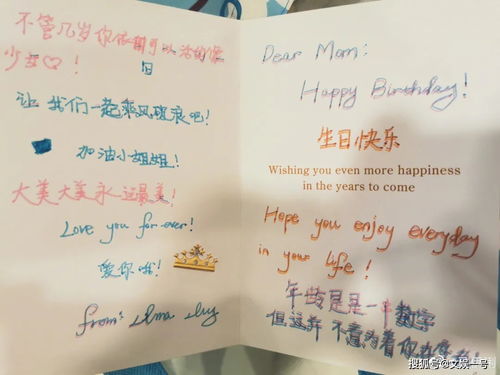 不管几岁你依旧可以活的像
少女♡!
旧
让我们一起乘风破浪吧!
加油小姐姐!
大美大美永远最美!
Love you for ever!
爱你哦!
from:
Dear Mom:
Happy Birthday!
生日快乐
Wishing you even more happiness
in the years to come
Hope you enjoy everyday
in your life!
年龄是是一串数字
但这并不意为着你
搜狐号@文娱一号